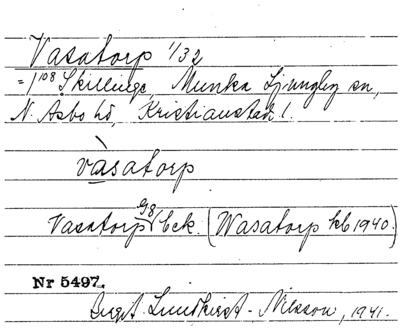 Vasatorp 1/32
= 1/108 Skillinge, Munka Ljungby sn,
N. Åsbo hd, Kristianstads l.
vàsatorp
Vasatorp G8 bek. (Wasatorp kb 1940.)
Nr 5497.
Birgit Lundkvist-Nilsson, 1941.